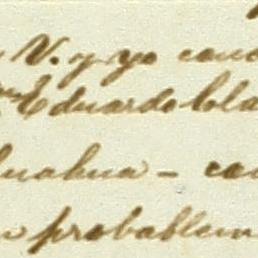 V. y yo cono
Eduardo Cla
huahua - ca
probablem